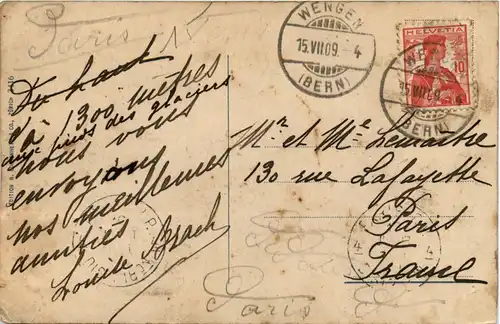 Paris 15
WENGEN
15.VII.09.-4
(BERN)
HELVETIA
10
WENGEN
15.VII.09.-4
(BERN)
Du haut
d'à 1300 mètres
aux pieds des glaciers
nous vous
envoyons
nos meilleures
amitiés
Louise
Mr et Me Lemaitre
130 rue Lafayette
Paris
France
Paris